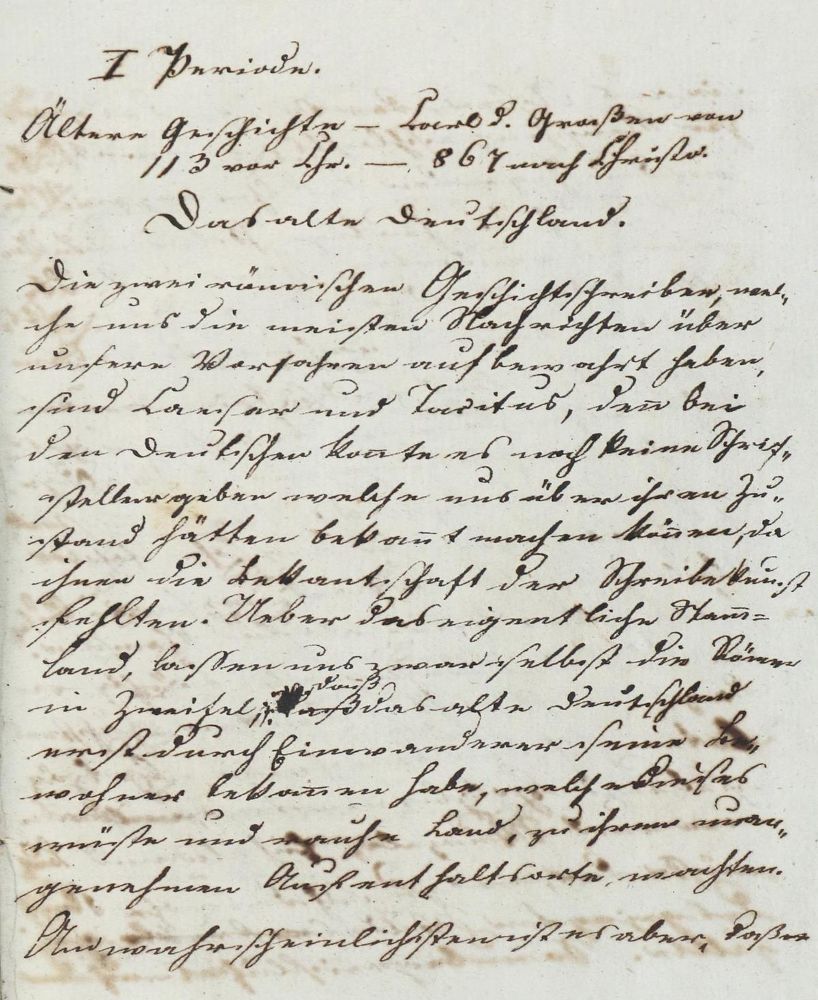 I Periode.
Ältere Geschichte – Carl d. Großen von
113 vor Chr. –. 867 nach Christo.
Das alte Deutschland.
Die zwei römischen Geschichtschreiber, wel„
che uns die meisten Nachrichten über
unsere Vorfahren aufbewahrt haben,
sind Caesar und Tacitus, deñ bei
den Deutschen koñte es noch keine Schrif„
steller geben welche uns über ihren Zu„
stand hätten bekañt machen köñen, da
ihnen die Bekantschaft der Schreibekunst
fehlten. Ueber das eigentliche Stam̃=
land, lassen uns zwar selbst die Römer
in Zweifel, daß das alte Deutschland
erst durch Einwanderer seine Be„
wohner bekom̃en habe, welche dieses
wüste und rauhe Land, zu ihrem unan„
genehmen Aufenthaltsorte machten.
Am wahrscheinlichsten ist es aber, daß